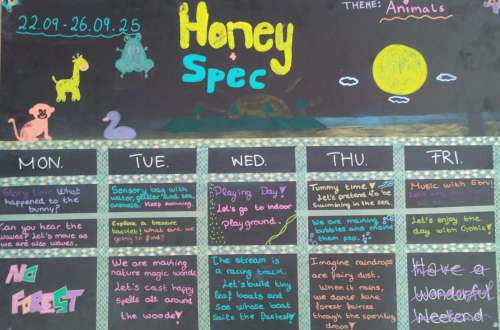 22.09-26.09.25
Honey
+
Spec
THEME: Animals
MON.
TUE.
WED.
THU.
FRI.
Story time What
happened to the
bunny?
Sensory bag with
water, glitter and sea
animals. Keep moving.
Playing Day!
Let's go to indoor
playground.
Tummy time!
Let's pretend to be
swimming in the sea.
Music with
Can you hear the
waves? Let's move as
we are also waves.
Explore a treasure
basket! What are we
going to find?
We are making
bubbles and make
them pop.
Let's enjoy the
day with
NO
FOREST
We are making
nature magic wands.
Let's cast happy
spells all around
the woods!
The stream is
a racing track.
Let's build tiny
leaf boats and
see whose boat
sails the fastest!
Imagine raindrops
are fairy dust.
When it rains,
we dance like
forest fairies
though the sparkling
drops!
Have a
Wonderful
Weekend